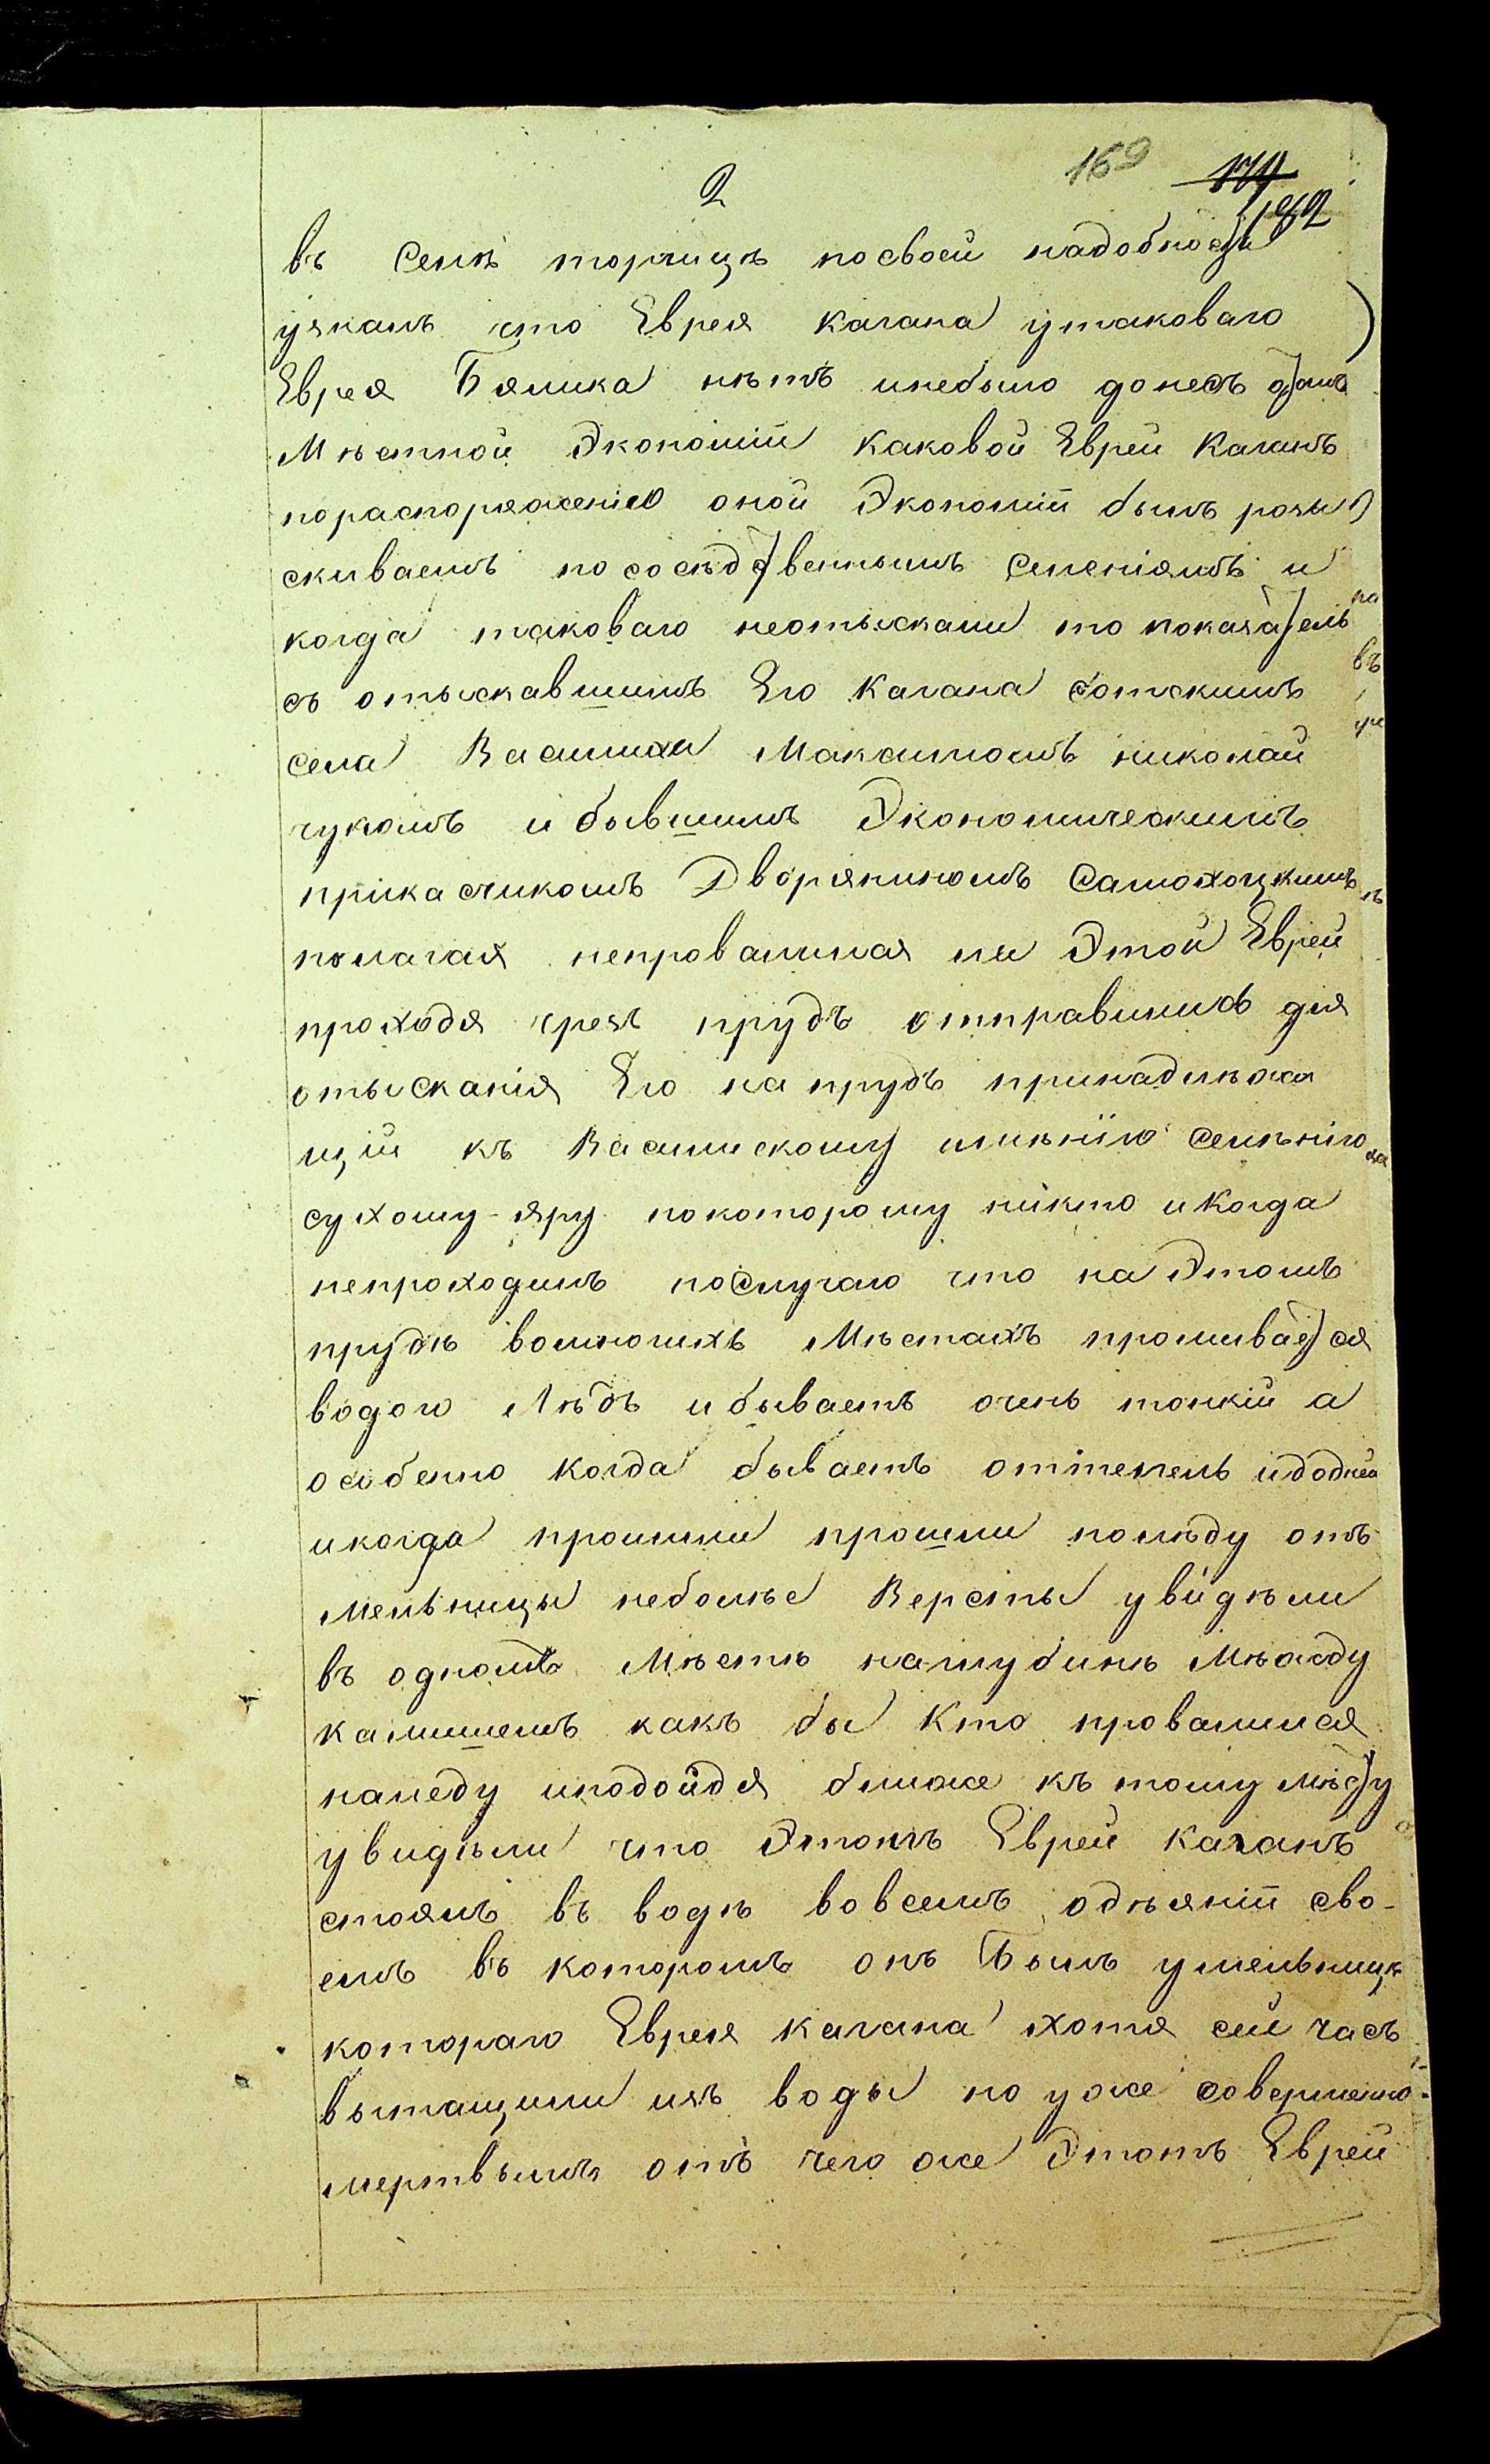 2
169
174
182
въ селѣ торчицѣ посвоей надобности
узналъ что Еврея Кагана утаковаго
Еврея Бялика нѣтъ инебыло донесъ отомъ
Мѣстной Экономіи каковой Еврей Каганъ
пораспоряженію оной Экономіи былъ розы
скиваемъ по сосѣдственнымъ селеніямъ и
когда таковаго неотыскали то показатель
съ отыскавшимъ Его Кагана сотскимъ
села Василихи Максимомъ николай
чукомъ и бывшимъ Экономическимъ
прикасчикомъ Дворяниномъ Самохоцкимъ
полагая непровалился ли Этой Еврей
проходя чрезъ прудъ отправились для
отысканія Его на прудъ принадлежа
щій къ Васили скому имѣнію селѣнію
сухому-яру покоторому никто икогда
непроходилъ послучаю что на Этомъ
прудѣ вомногихъ Мѣстахъ промивается
водою Лѣдъ ибываетъ очень тонкій а
особенно когда бываетъ оттепель идодней
икогда прошли прошли полѣду отъ
Мельницы неболѣе Версты увидѣли
въ одномъ Мѣстѣ наглубинѣ Мѣжду
камишемъ какъ бы Кто провалился
паледу иподойдя ближе къ тому мѣсту
увидѣли что Этотъ Еврей Каганъ
стоялъ въ водѣ вовсемъ одѣяніи сво-
емъ въ которомъ онъ Былъ умельницѣ
котораго Еврея Кагана хотя сей часъ
вытащили изъ воды но уже совершенно
мертвымъ отъ чего же Этотъ Еврей